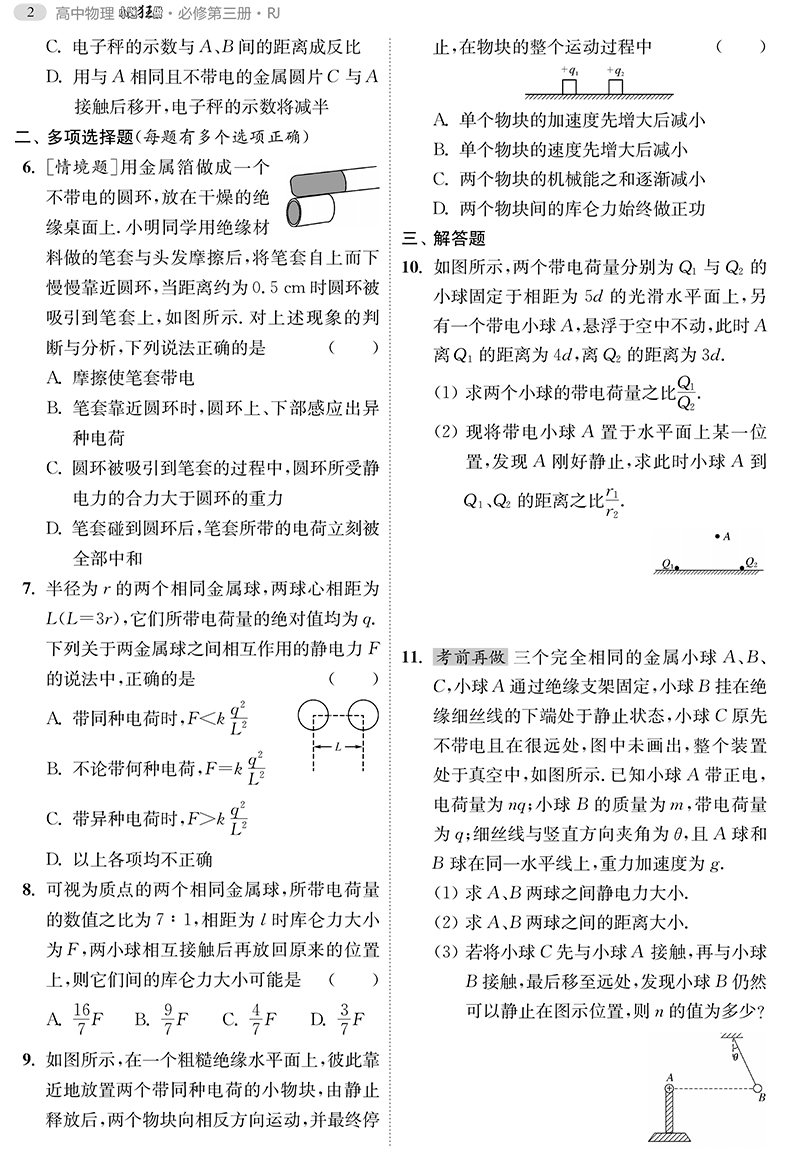 2 高中物理 小题狂做·必修第三册·RJ
C. 电子秤的示数与 A、B 间的距离成反比
D. 用与 A 相同且不带电的金属圆片 C 与 A
接触后移开,电子秤的示数将减半
二、多项选择题(每题有多个选项正确)
6. [情境题]用金属箔做成一个
不带电的圆环,放在干燥的绝
缘桌面上.小明同学用绝缘材
料做的笔套与头发摩擦后,将笔套自上而下
慢慢靠近圆环,当距离约为 0.5 cm 时圆环被
吸引到笔套上,如图所示.对上述现象的判
断与分析,下列说法正确的是 ( )
A. 摩擦使笔套带电
B. 笔套靠近圆环时,圆环上、下部感应出异
种电荷
C. 圆环被吸引到笔套的过程中,圆环所受静
电力的合力大于圆环的重力
D. 笔套碰到圆环后,笔套所带的电荷立刻被
全部中和
7. 半径为 r 的两个相同金属球,两球心相距为
L(L=3r),它们所带电荷量的绝对值均为 q.
下列关于两金属球之间相互作用的静电力 F
的说法中,正确的是 ( )
A. 带同种电荷时,F<k q²/L²
B. 不论带何种电荷,F=k q²/L²
C. 带异种电荷时,F>k q²/L²
D. 以上各项均不正确
L
8. 可视为质点的两个相同金属球,所带电荷量
的数值之比为 7∶1,相距为 l 时库仑力大小
为 F,两小球相互接触后再放回原来的位置
上,则它们间的库仑力大小可能是 ( )
A. 16/7 F B. 9/7 F C. 4/7 F D. 3/7 F
9. 如图所示,在一个粗糙绝缘水平面上,彼此靠
近地放置两个带同种电荷的小物块,由静止
释放后,两个物块向相反方向运动,并最终停
止,在物块的整个运动过程中 ( )
+q₁ +q₂
A. 单个物块的加速度先增大后减小
B. 单个物块的速度先增大后减小
C. 两个物块的机械能之和逐渐减小
D. 两个物块间的库仑力始终做正功
三、解答题
10. 如图所示,两个带电荷量分别为 Q₁ 与 Q₂ 的
小球固定于相距为 5d 的光滑水平面上,另
有一个带电小球 A,悬浮于空中不动,此时 A
离 Q₁ 的距离为 4d,离 Q₂ 的距离为 3d.
(1) 求两个小球的带电荷量之比 Q₁/Q₂.
(2) 现将带电小球 A 置于水平面上某一位
置,发现 A 刚好静止,求此时小球 A 到
Q₁、Q₂ 的距离之比 r₁/r₂.
A
Q₁ Q₂
11. 考前再做 三个完全相同的金属小球 A、B、
C,小球 A 通过绝缘支架固定,小球 B 挂在绝
缘细丝线的下端处于静止状态,小球 C 原先
不带电且在很远处,图中未画出,整个装置
处于真空中,如图所示.已知小球 A 带正电,
电荷量为 nq;小球 B 的质量为 m,带电荷量
为 q;细丝线与竖直方向夹角为 θ,且 A 球和
B 球在同一水平线上,重力加速度为 g.
(1) 求 A、B 两球之间静电力大小.
(2) 求 A、B 两球之间的距离大小.
(3) 若将小球 C 先与小球 A 接触,再与小球
B 接触,最后移至远处,发现小球 B 仍然
可以静止在图示位置,则 n 的值为多少?
θ
A
B